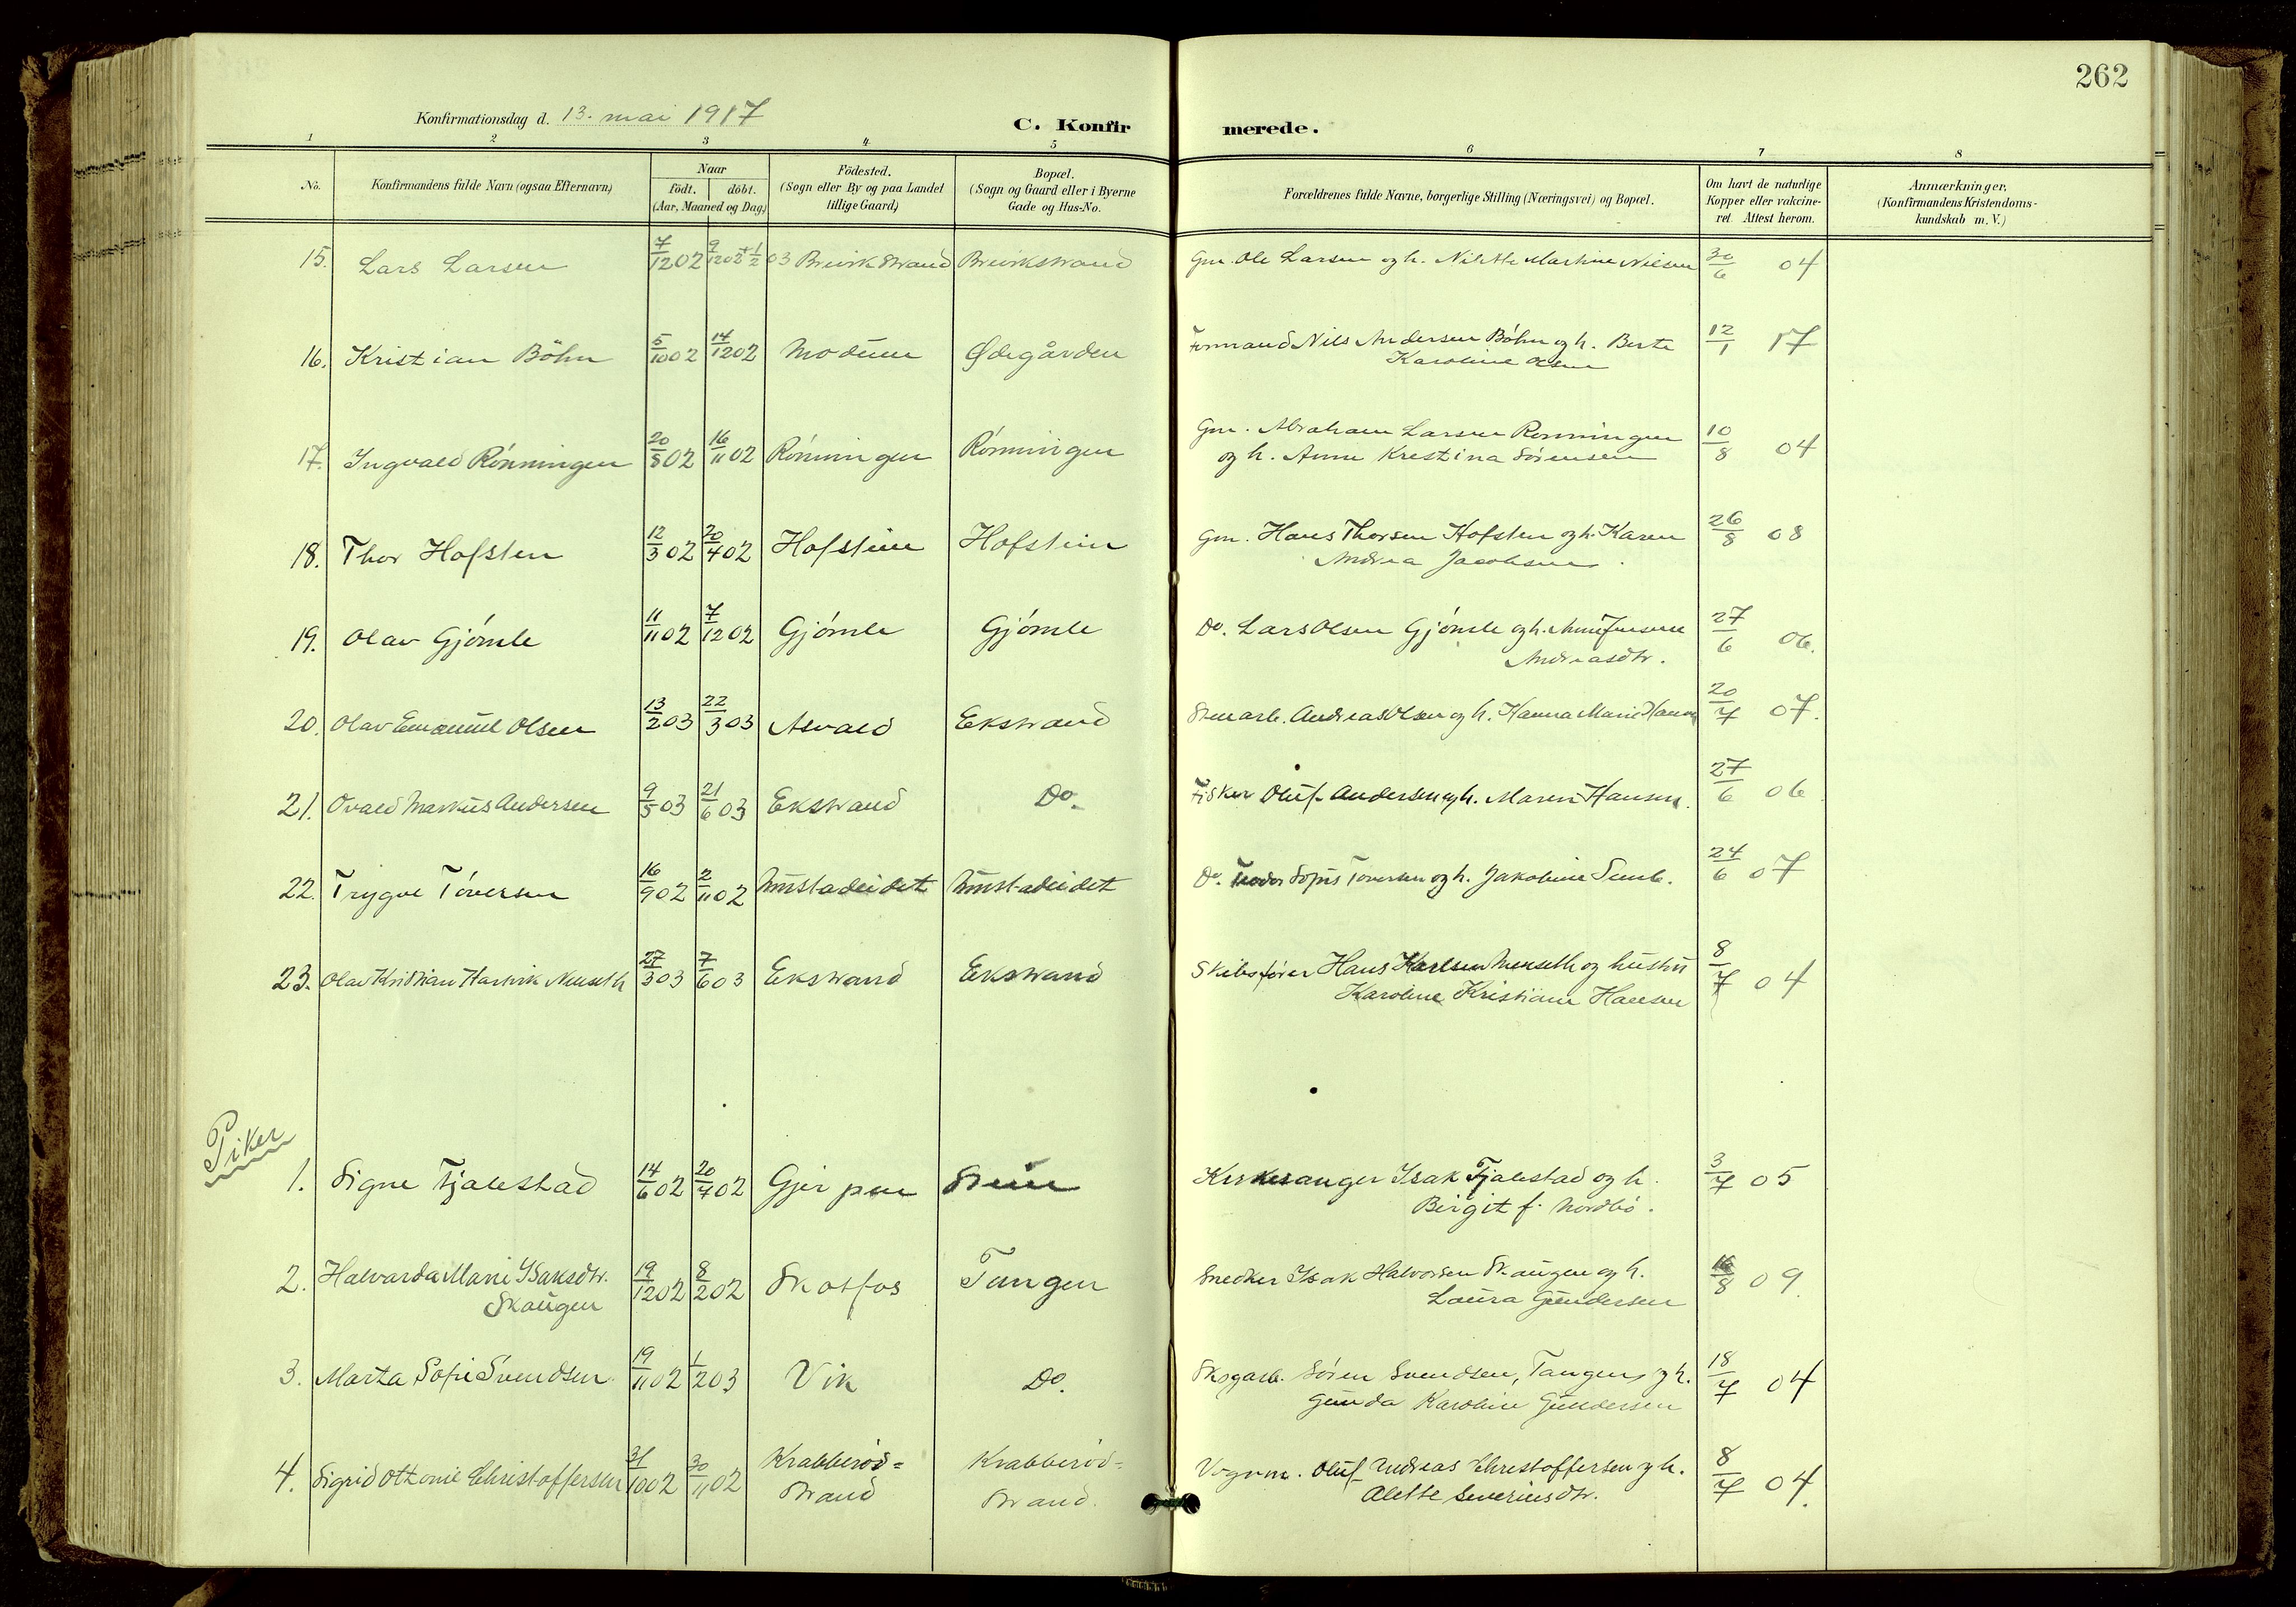 262
Konfirmationsdag d. 13. mai 1917
C. Konfirmerede.
1 2 3 4 5 6 7 8
No. Konfirmandens fulde Navn (ogsaa Efternavn) Naar født. døbt. (Aar, Maaned og Dag) Födested. (Sogn eller By og paa Landet tillige Gaard) Bopæl. (Sogn og Gaard eller i Byerne Gade og Hus-No. Forældrenes fulde Navne, borgerlige Stilling (Næringsvei) og Bopæl. Om havt de naturlige Kopper eller vakcineret. Attest herom. Anmærkninger. (Konfirmandens Kristendomskundskab m. V.)
15. Lars Larsen 7/12 02 9/12 02 + 1/2 03 Brevikstrand Brevikstrand Gm. Ole Larsen og h. Nilette Martine Nilsen 30/6 04
16. Kristian Böhn 5/10 02 14/12 02 Modum Ødegården Formand Nils Andersen Böhn og h. Berte
Karoline Olsen 12/1 17
17. Ingvald Rönningen 20/8 02 16/11 02 Rönningen Rönningen Gm. Abraham Larsen Rönningen
og h. Anne Krestina Sörensen 10/8 04
18. Thor Hofsten 12/3 02 20/4 02 Hofstein Hofstein Gm. Hans Thorsen Hofsten og h. Karen
Andrea Jacobsen 26/8 08
19. Olav Gjömle 11/11 02 7/12 02 Gjömle Gjömle Do. Lars Olsen Gjömle og h. Anne
Andreasdtr. 27/6 06.
20. Olav Emanuel Olsen 13/2 03 22/3 03 Asvald Ekstrand Stenarb. Andreas Olsen og h. Hanna Marie 20/7 07.
21. Ovald Markus Andersen 9/5 03 21/6 03 Ekstrand Do. Fisker Oluf Andersen og h. Maren Hansen. 27/6 06
22. Trygve Töversen 16/9 02 2/11 02 Mustadeidet Mustadeidet Do. Sofus Töversen og h. Jakobine 24/6 07
23. Olav Kristian Hartvik Menseth 27/3 03 7/6 03 Ekstrand Ekstrand Skibsförer Hans Karlsen Menseth og hustru
Karoline Kristiane Hansen 8/7 04
Piker
1. Signe Fjalestad 14/6 02 20/7 02 Gjerpen Kirkesanger Isak Fjalestad og h.
Birgit f. Nordbö. 3/7 05
2. Halvarda Marie Isaksdtr.
Skaugen 19/12 02 8/2 02 Skotfos Tangen Snedker Isak Halvorsen Skaugen og h.
Laura Gundersen 16/8 09.
3. Marta Sofie Svendsen 19/11 02 1/2 03 Vik Do. Skogarb. Sören Svendsen, Tangen og h.
Gunda Karoline Gundersen 18/7 04
4. Sigrid Ottonie Christoffersen 31/10 02 30/11 02 Krabberöd=
strand Krabberöd=
strand. Vognm. Oluf Andreas Christoffersen og h.
Alette Severinsdtr. 8/7 04.